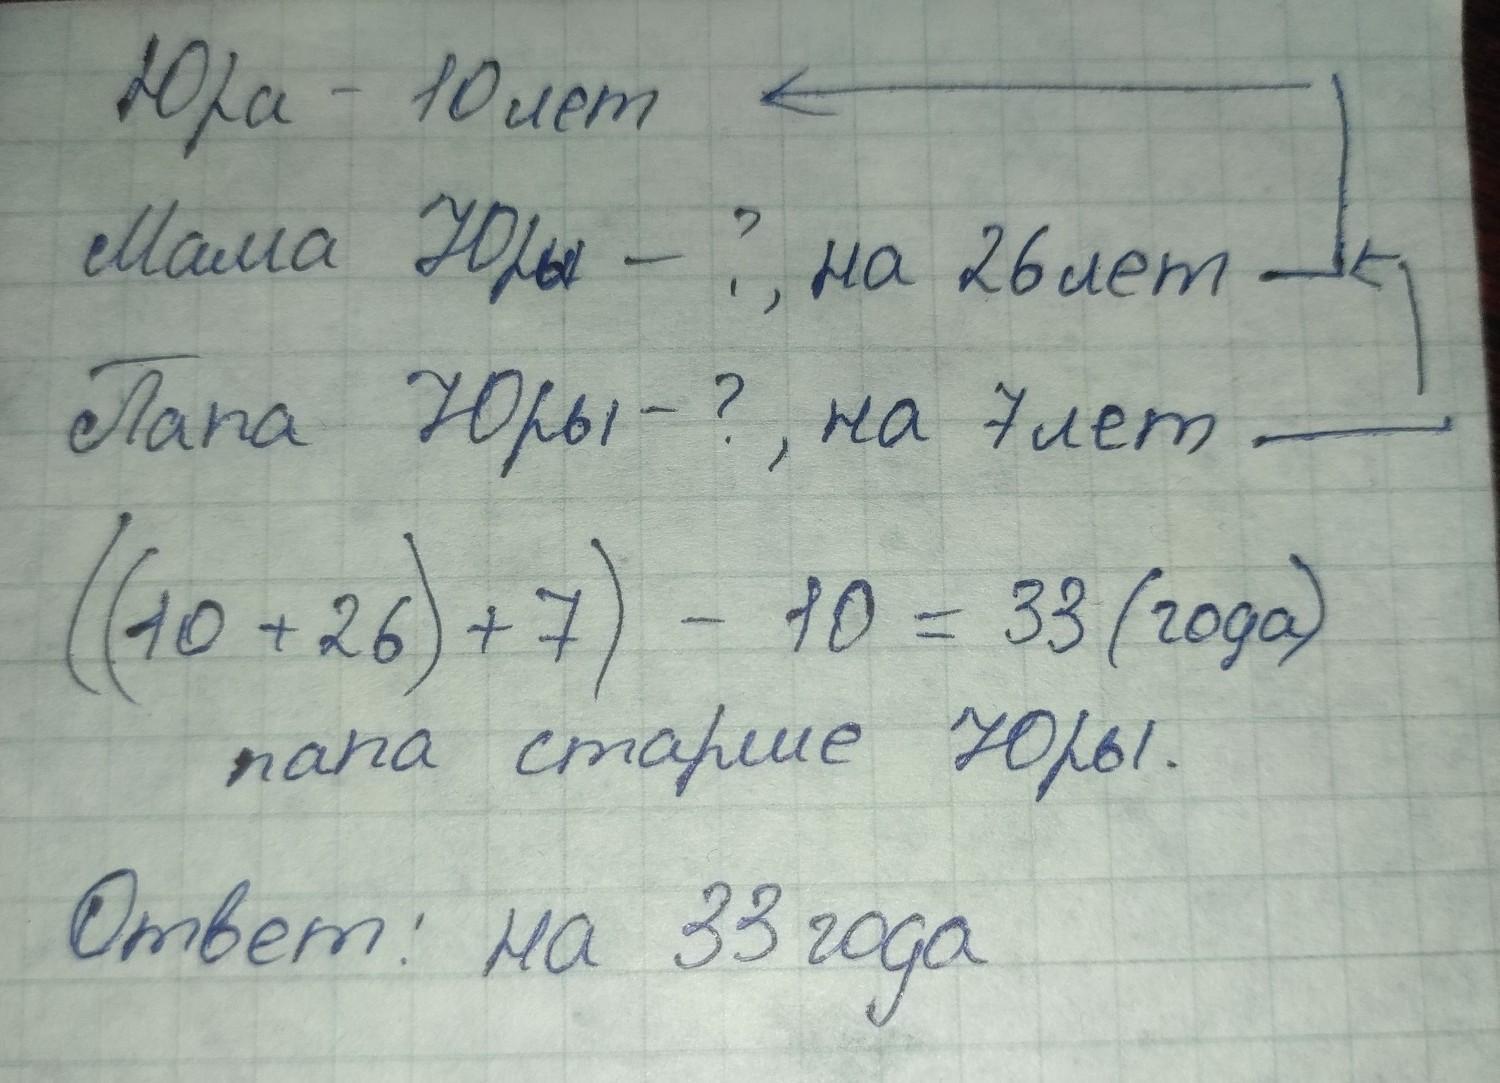 Юра - 10 лет
Мама Юры - ?, на 26 лет
Папа Юры - ?, на 7 лет
((10 + 26) + 7) - 10 = 33 (года)
папа старше Юры.
Ответ: на 33 года